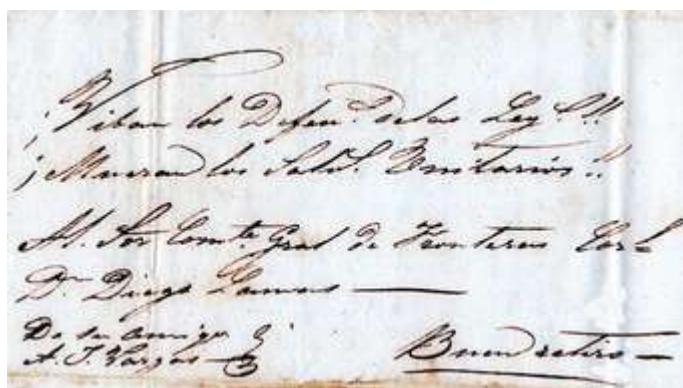 ¡Viban los Defen.s delas Ley.s!!
¡Mueran los Salv.s Unitarios!!
Al Sor Comte. Gral de Fronteras Corl
Dn Diego Lamas —
De su amigo
A. J. Vargas
Buen retiro —